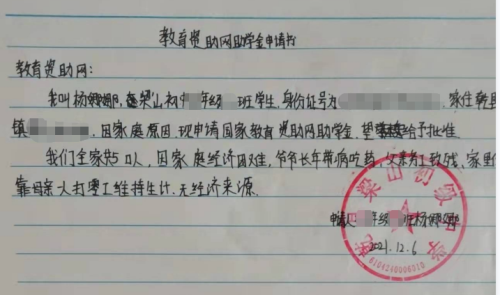 教育资助网助学金申请书
教育资助网:
我叫杨娜娜,梁山初年级班学生,身份证号为家住乾县
镇,因家庭原因,现申请国家教育资助网助学金,望给予批准
我们全家共5口人,因家庭经济困难,爷爷长年带病吃药,父亲务工致残,家里
靠母亲一人打零工维持生计,无经济来源.
申请人年级班杨娜娜
2021.12.6
梁山初级中学
6104240006310